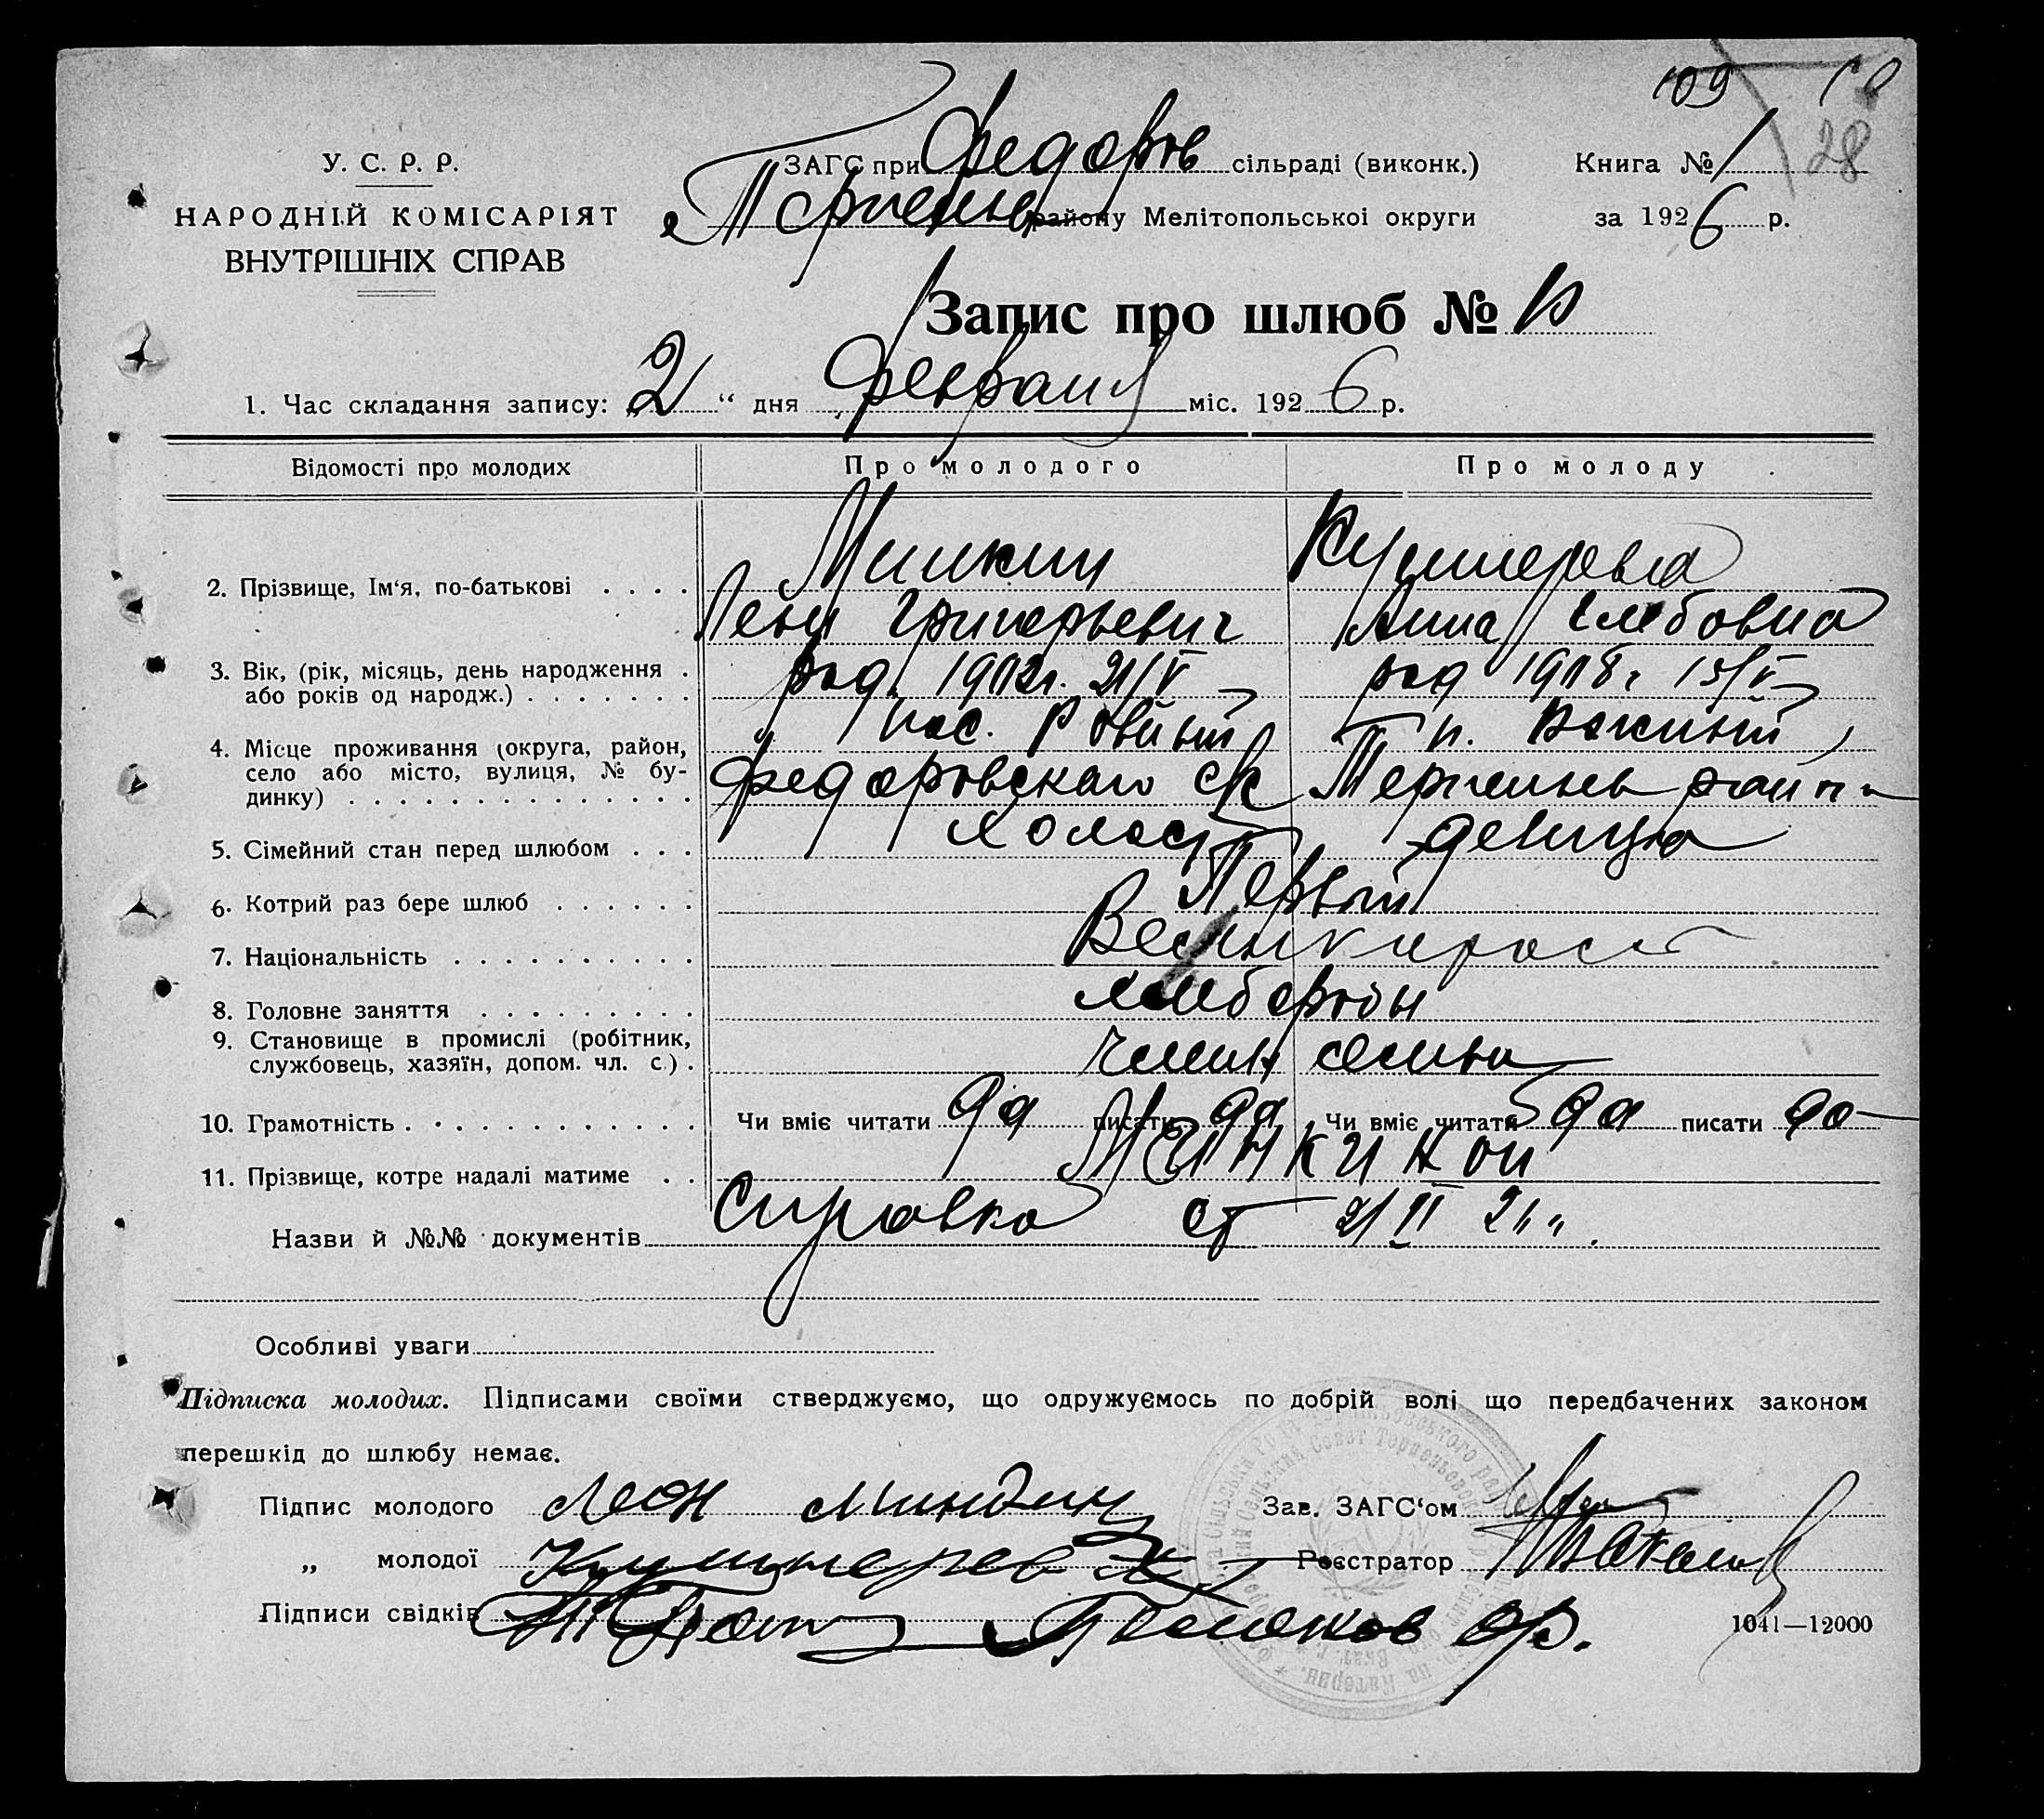 109 10
28
У. С. Р. Р.
НАРОДНІЙ КОМІСАРІЯТ
ВНУТРІШНІХ СПРАВ
ЗАГС при Федоров сільраді (виконк.) Книга № 1
Терпень району Мелітопольської округи за 1926 р.
Запис про шлюб № 10
1. Час складання запису: „2“ дня февраля міс. 1926 р.
Відомості про молодих Про молодого Про молоду
2. Прізвище, Ім‘я, по-батькові . . . . Минкин Кушнерева
Григорьевич Анна Глебовна
3. Вік, (рік, місяць, день народження . або років од народж.) . . . . . . . род. 1902г. 21/V род 1908г 15/V
4. Місце проживання (округа, район, село або місто, вулиця, № будинку) . . . . . . . . . . . . . . пос. п.
Федоровскаго с/с Терпень район
5. Сімейний стан перед шлюбом . . . холост девица
6. Котрий раз бере шлюб . . . . . . Первый
7. Національність . . . . . . . . . . Великорос
8. Головне заняття . . . . . . . . . хлебороб
9. Становище в промислі (робітник, службовець, хазяїн, допом. чл. с.) . член семьи
10. Грамотність . . . . . . . . . . . . Чи вміє читати да писати да Чи вміє читати да писати да
11. Прізвище, котре надалі матиме . . Минкиной
Назви й №№ документів Справка от 21 II
Особливі уваги
Підписка молодих. Підписами своїми стверджуємо, що одружуємось по добрій волі що передбачених законом
перешкід до шлюбу немає.
Підпис молодого Леон Минкин Зав. ЗАГС‘ом
„ молодої Кушнерева Реєстратор
Підписи свідків 1041—12000